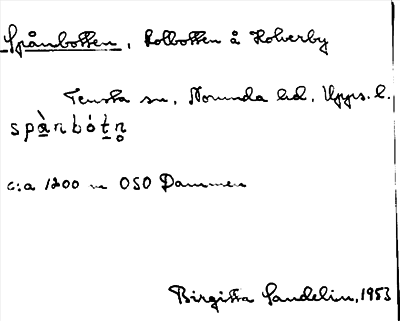 Spånbotten, Kolbotten å Holverby
Tensta sn, Norunda hd, Upps. l.
spȧ̀nbótn̥
c:a 1200 m OSO Dammen
Birgitta Sandelin, 1953